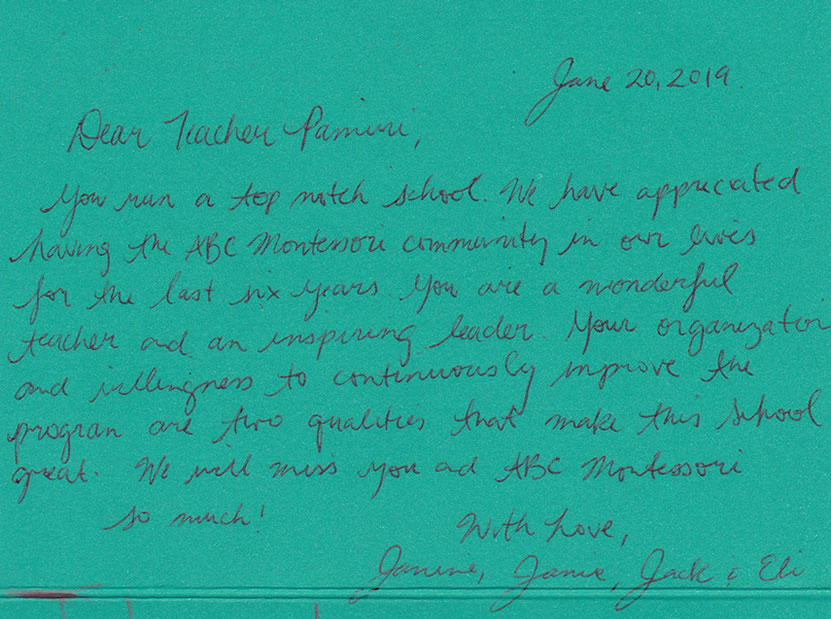 June 20, 2019.
Dear Teacher Pamini,
You run a top notch school. We have appreciated
having the ABC Montessori community in our lives
for the last six years You are a wonderful
teacher ad an inspiring leader. Your organization
and willingness to continuously improve the
program are two qualities that make this school
great. We will miss you ad ABC Montessori
so much!
With Love,
Janine, Jamie, Jack & Eli